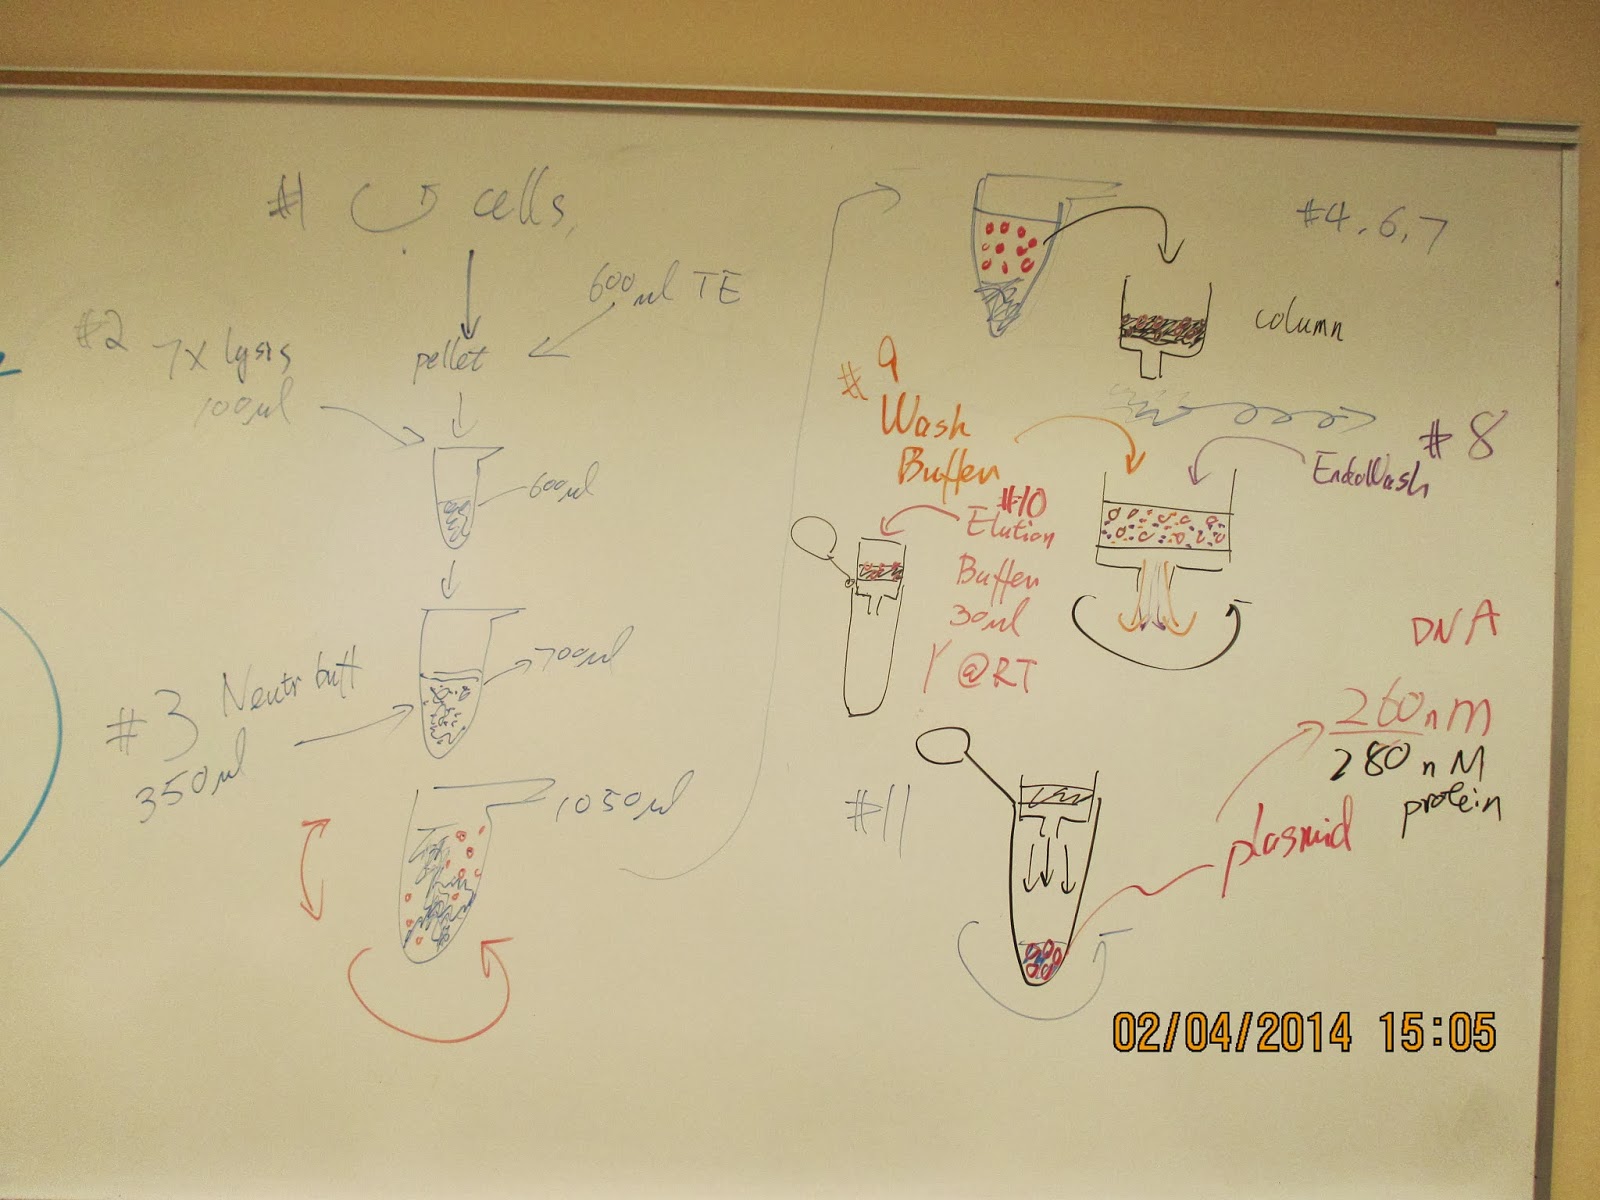 #1 cells,
600µl TE
#2 7X lysis
100µl
pellet
600µl
700µl
#3 Neutr buff
350µl
1050µl
#4, 6, 7
column
#9
Wash
Buffer
#8
EndoWash
#10
Elution
Buffer
30µl
1' @RT
#11
DNA
260nm
280nM
protein
plasmid
02/04/2014 15:05